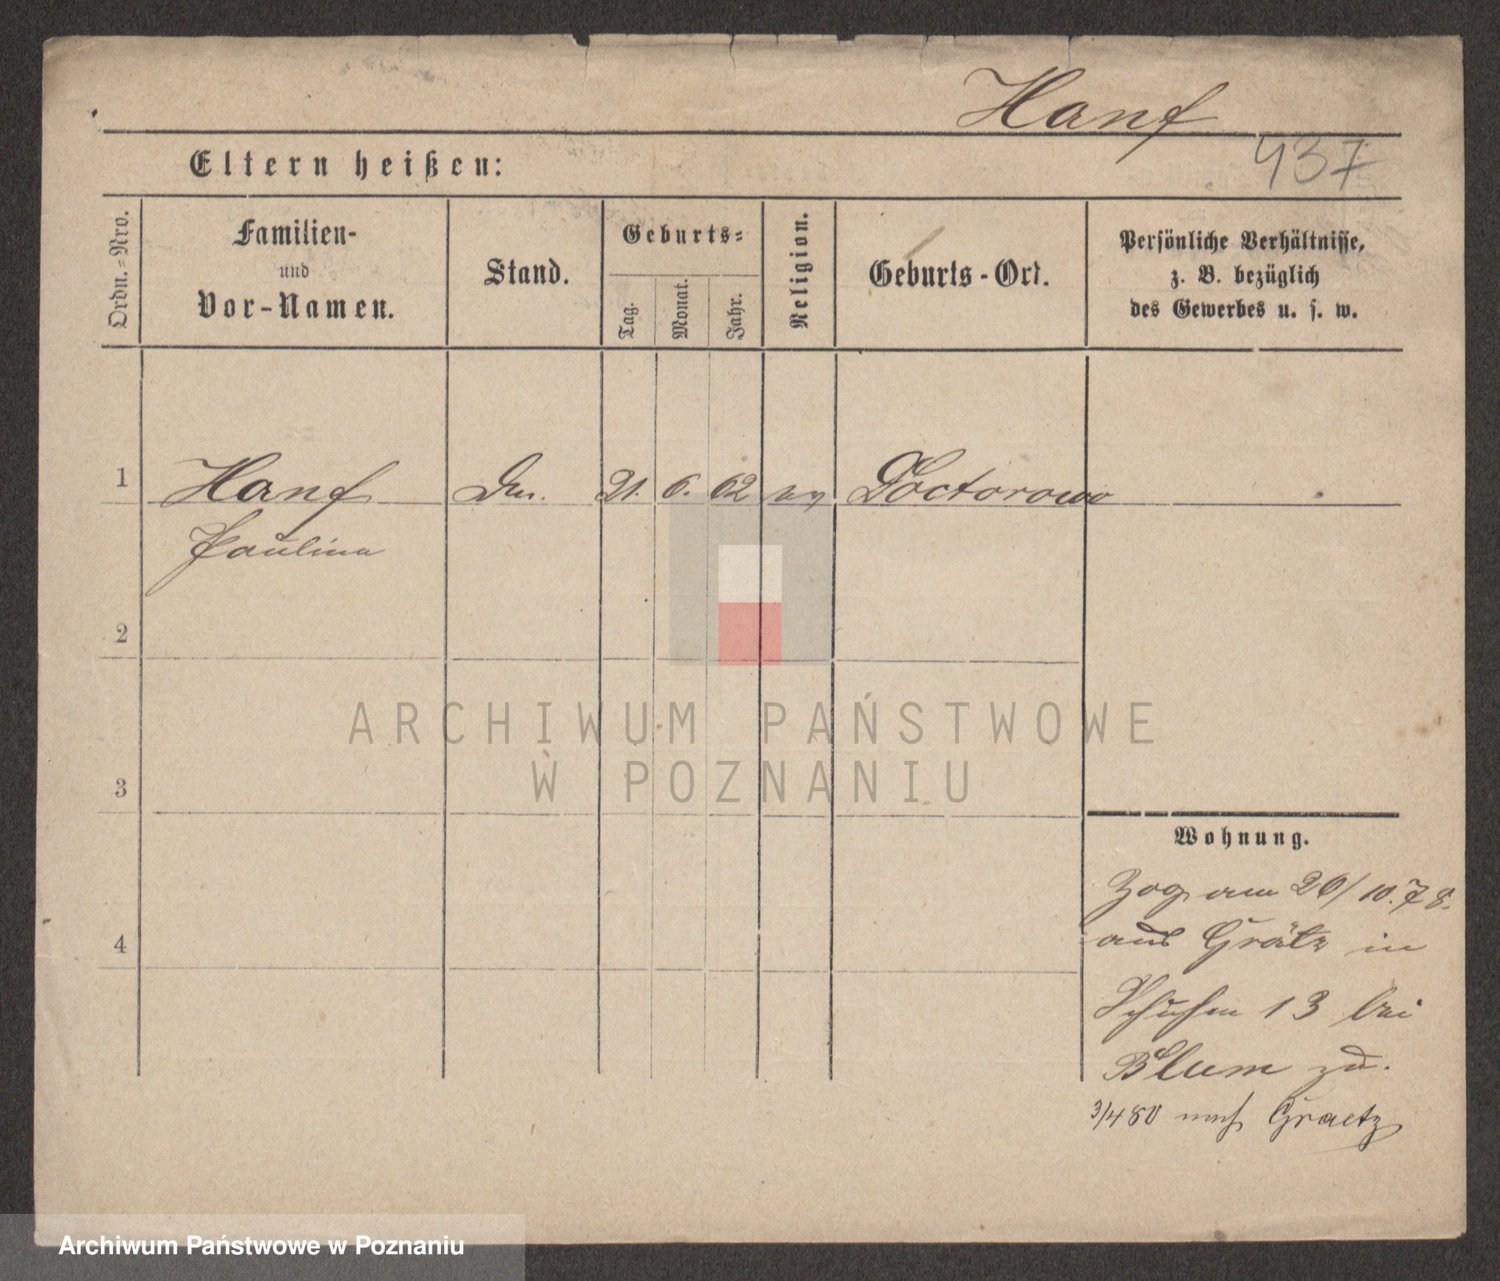 Hanf
437
Eltern heißen:
Ordn.-Nro.
Familien-
und
Vor-Namen.
Stand.
Geburts-
Tag.
Monat.
Jahr.
Religion.
Geburts-Ort.
Persönliche Verhältnisse,
z. B. bezüglich
des Gewerbes u. s. w.
1 Hanf 21. 6. 62 Doctorowo
Paulina
2
3
4
ARCHIWUM PAŃSTWOWE
W POZNANIU
Wohnung.
Zog am 26/10.78.
aus Grätz in
13 bei
Blum zu.
3/4 80 nach Graetz
Archiwum Państwowe w Poznaniu